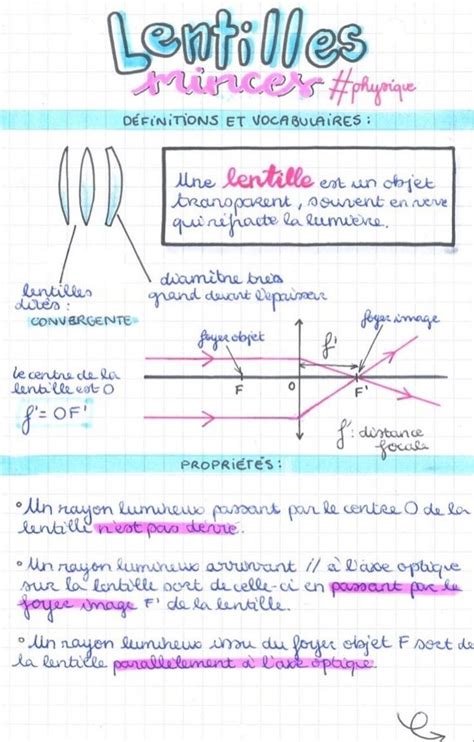 Lentilles
minces #physique
DÉFINITIONS ET VOCABULAIRES :
Une lentille est un objet
transparent, souvent en verre
qui réfracte la lumière.
lentilles
dites :
CONVERGENTE
diamètre très
grand devant l'épaisseur
foyer objet
f'
foyer image
le centre de la
lentille est O
f' = OF'
F
O
F'
f' : distance
focale
PROPRIÉTÉS :
° Un rayon lumineux passant par le centre O de la
lentille n'est pas dévié.
° Un rayon lumineux arrivant // à l'axe optique
sur la lentille sort de celle-ci en passant par le
foyer image F' de la lentille.
° Un rayon lumineux issu du foyer objet F sort de
la lentille parallèlement à l'axe optique.